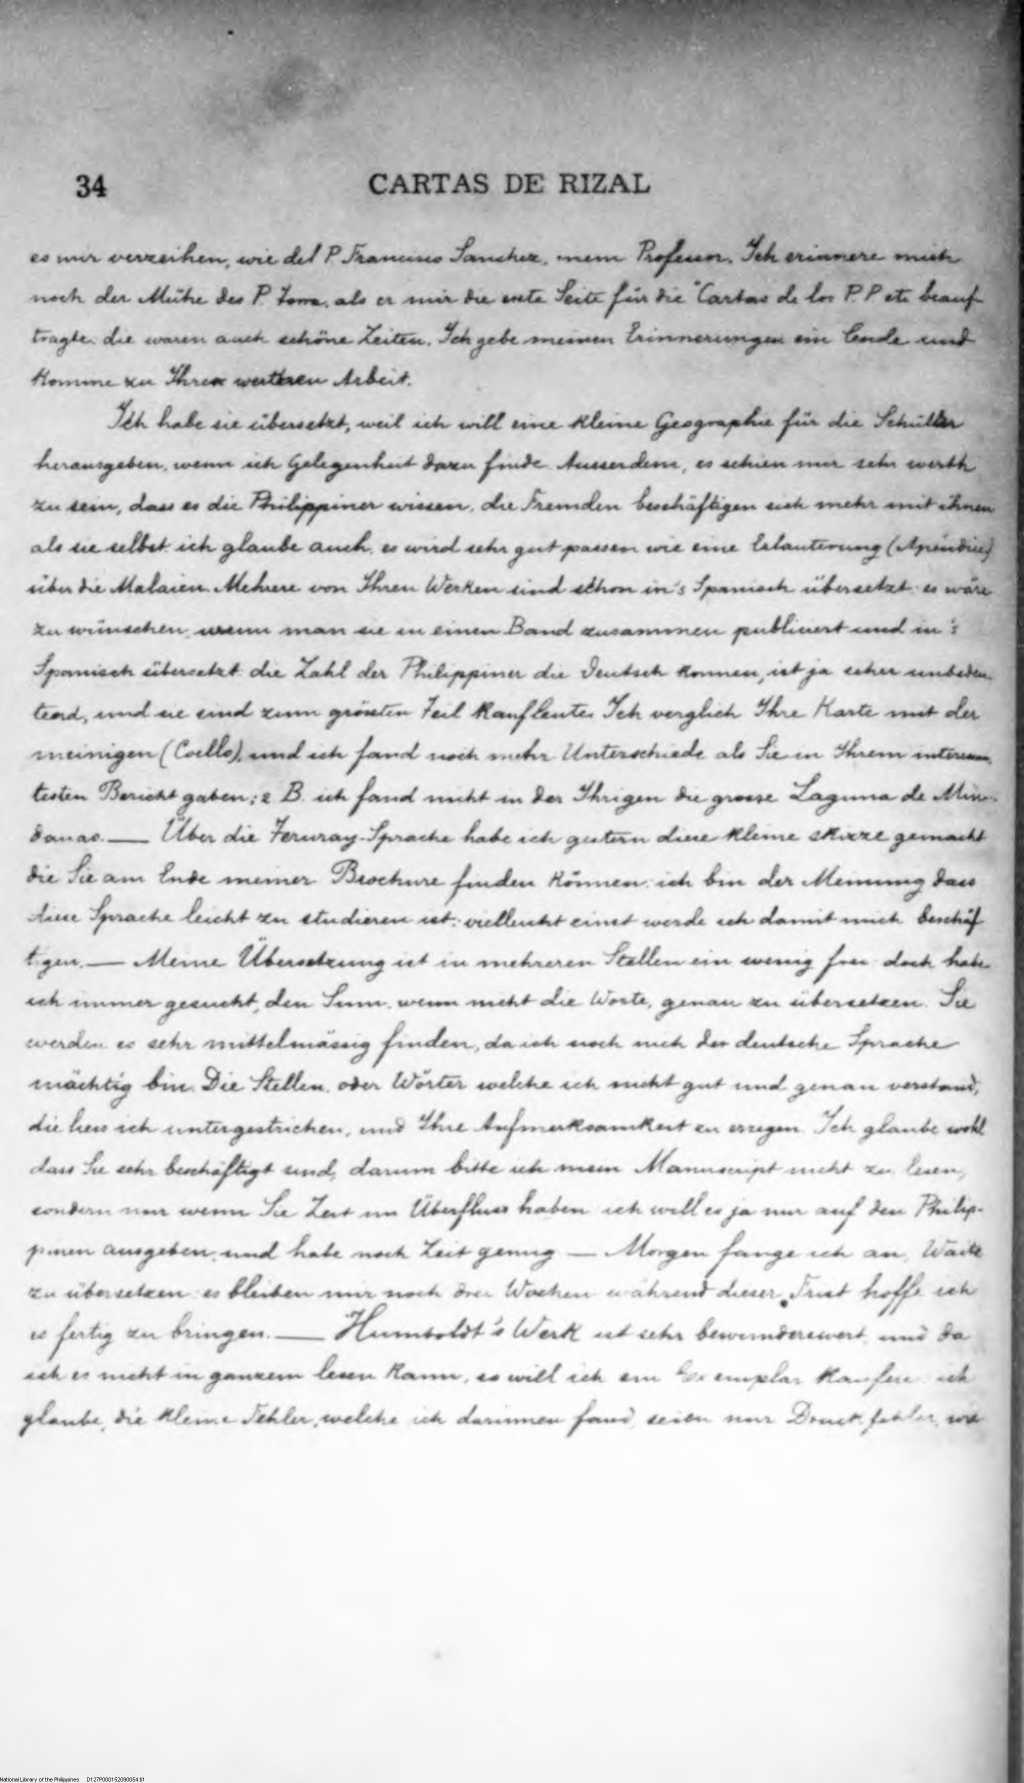 34 CARTAS DE RIZAL
es mir verzeihen, wie del P. Francisco Sanchez, mein Professor. Ich erinnere mich
noch der Mühe des P. als er mir die erste Seite für die "Cartas de los P.P etc beauf
tragte: die waren auch schöne Zeiten. Ich gebe meinen Erinnerungen ein Ende und
komme zu Ihrer Arbeit.
Ich habe sie übersetzt, weil ich will eine kleine Geographie für die Schüller
herausgeben, wenn ich Gelegenheit dazu finde. Ausserdem, es schien mir sehr werth
zu sein, dass es die Philippiner wissen, die Fremden beschäftigen sich mehr mit ihnen
als sie selbst. ich glaube auch, es wird sehr gut passen wie eine Erlauterung (Apéndice)
über die Malaien. Mehrere von Ihren Werken sind schon in's Spanisch übersetzt: es wäre
zu wünschen, wenn man sie in einen Band zusammen publiciert und in's
Spanisch übersetzt. die Zahl der Philippiner die Deutsch konnen, ist ja sehr unbedeu-
tend, und sie sind zum grössten Teil Kaufleute. Ich verglich Ihre Karte mit der
meinigen (Coello), und ich fand noch mehr Unterschiede als Sie in Ihrem interessan-
testen Bericht gaben; z B. ich fand nicht in der Ihrigen die grosse Laguna de Min-
danao. — Über die Teruray-Sprache habe ich gestern diese kleine skizze gemacht
die Sie am Ende meiner Brochure finden können: ich bin der Meinung dass
diese Sprache leicht zu studieren ist: vielleicht einst werde ich damit mich beschäf
tigen. — Meine Übersetzung ist in mehreren Stellen ein wenig frei: doch habe
ich immer gesucht, den Sinn, wenn nicht die Worte, genau zu übersetzen. Sie
werden es sehr mittelmässig finden, da ich noch nich der deutsche Sprache
mächtig bin. Die Stellen, oder Wörter welche ich nicht gut und genau verstand,
die liess ich untergestrichen, und Ihre Aufmerksamkeit zu erregen. Ich glaube wohl
dass Sie sehr beschäftigt sind, darum bitte ich mein Manuscript nicht zu lesen,
sondern nur wenn Sie Zeit im Überfluss haben ich will es ja nur auf den Philip-
pinen ausgeben, und habe noch Zeit genug — Morgen fange ich an, Waitz
zu übersetzen: es bleiben mir noch drei Wochen während dieser Frist hoffe ich
es fertig zu bringen. — Humboldt's Werk ist sehr bewunderswert, und da
ich es nicht in ganzem lesen kann, so will ich ein Exemplar kaufen: ich
glaube, die kleine Fehler, welche ich darinnen fand, seien nur Druckfehler, wie
National Library of the Philippines